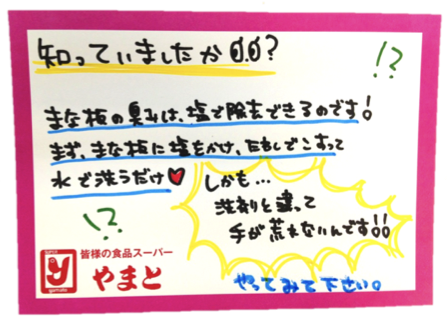 知っていましたか!!?
!?
まな板の臭みは、塩で除去できるのです!
まず、まな板に塩をかけ、たわしでこすって
水で洗うだけ♥
しかも…
洗剤と違って
手が荒れないんです!!
!?
皆様の食品スーパー
やまと
yamato
やってみて下さい。